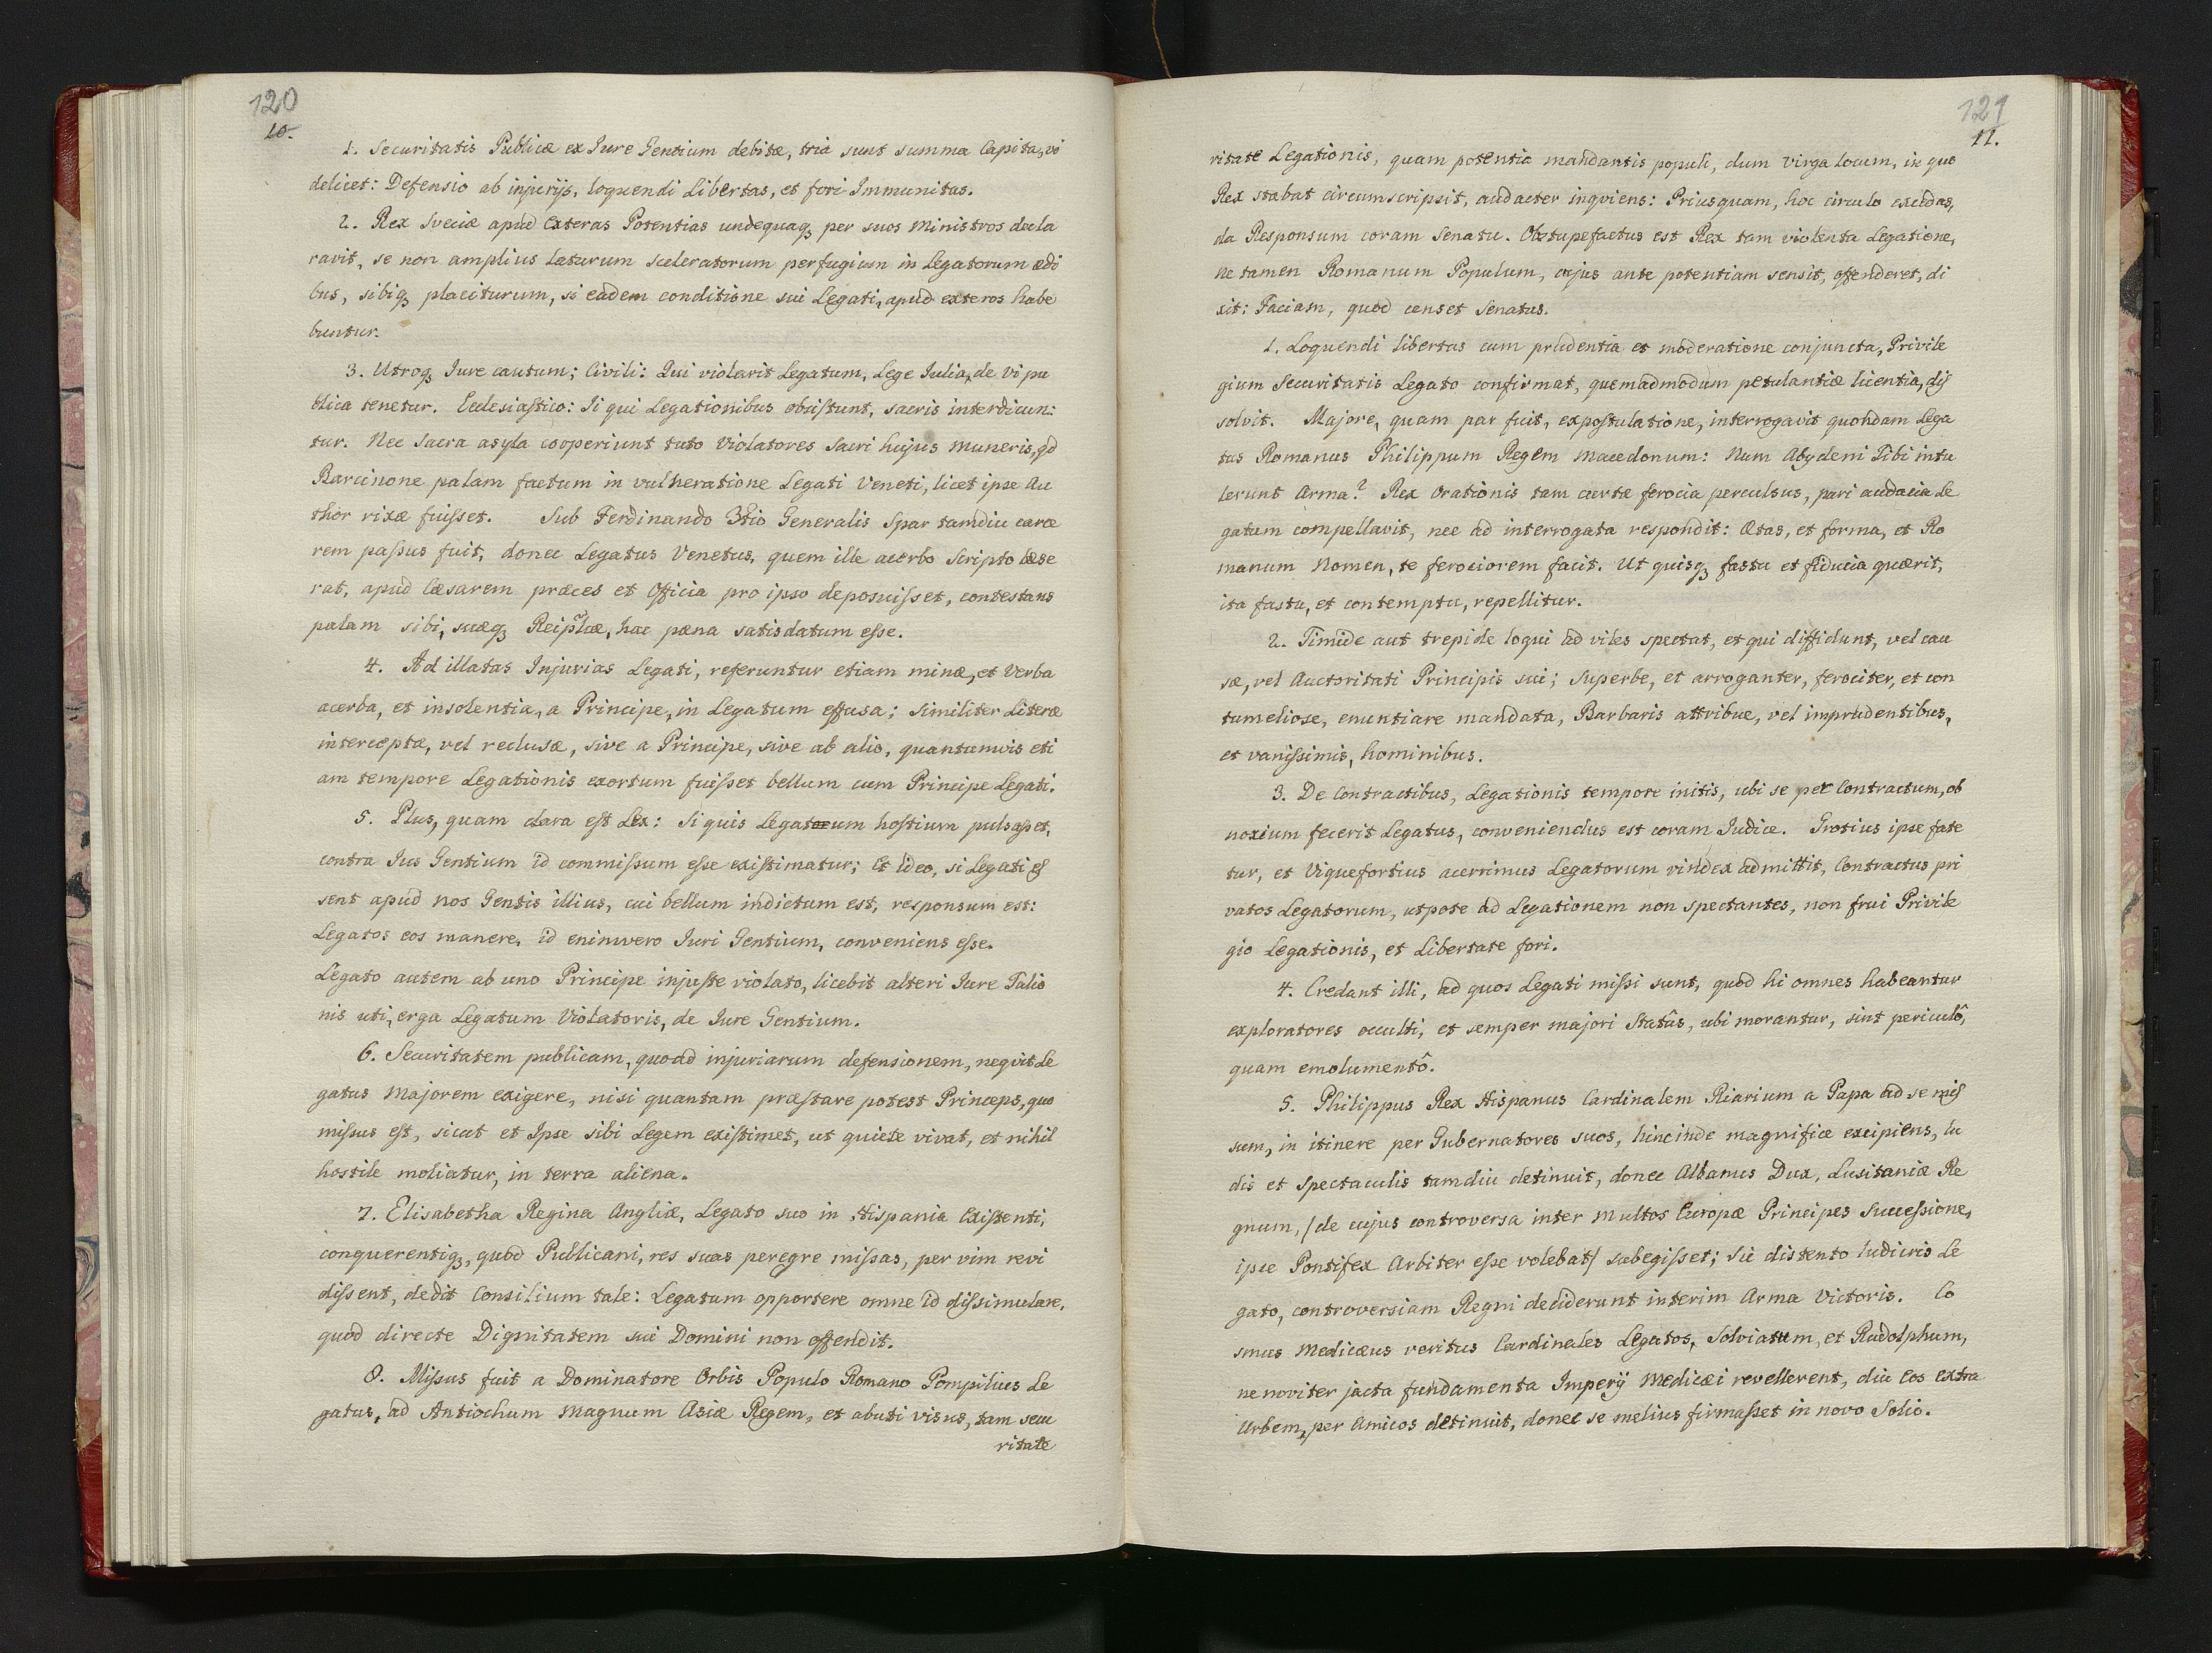 120
10.
1. Securitatis Publicæ ex Jure Gentium debitæ, tria sunt summa Capita, vi
delicet: Defensio ab injurijs, loquendi Libertas, et fori Immunitas.
2. Rex Sveciæ apud Exteras Potentias undequaq₃ per suos Ministros decla
ravit, se non amplius laturum sceleratorum perfugium in Legatorum ædi
bus, sibiq₃ placiturum, si eadem conditione sui Legati, apud exteros habe
buntur.
3. Utroq₃ Jure cautum; Civili: Qui violarit Legatum, Lege Julia, de vi pu
blica tenetur. Ecclesiastico: Si qui Legationibus obsistunt, sacris interdicun:
tur. Nec Sacra asyla cooperiunt tuto Violatores Sacri hujus Muneris, qd
Barcinone palam factum in vulneratione Legati Veneti, licet ipse Au
thor rixæ fuisset. Sub Ferdinando 3tio Generalis Spar tamdiu carce
rem passus fuit, donec Legatus Venetus, quem ille acerbo Scripto læse
rat, apud Cæsarem præces et Officia pro ipso deposuisset, contestans
palam sibi, suæq₃ Reiplcæ, hac pæna satisdatum esse.
4. Ad illatas Injurias Legati, referuntur etiam minæ, et Verba
acerba, et insolentia, a Principe, in Legatum effusa; similiter Literæ
interceptæ, vel reclusæ, sive a Principe, sive ab alio, quantumvis eti
am tempore Legationis exortum fuisset bellum cum Principe Legati.
5. Plus, quam clara est Lex: Si quis Legatum hostium pulsasset,
contra Jus Gentium id commissum esse existimatur; Et ideo, si Legati es
sent apud nos Gentis illius, cui bellum indictum est, responsum est:
Legatos eos manere, id enimvero Juri Gentium, conveniens esse.
Legato autem ab uno Principe injuste violato, licebit alteri Jure Talio
nis uti, erga Legatum Violatoris, de Jure Gentium.
6. Securitatem publicam, quoad injuriarum defensionem, nequit Le
gatus Majorem exigere, nisi quantam præstare potest Princeps, quo
missus est, sicut et Ipse sibi Legem existimet, ut quiete vivat, et nihil
hostile moliatur, in terra aliena.
7. Elisabetha Regina Angliæ, Legato suo in Hispania Existenti,
conquerentiq₃, quod Publicani, res suas peregre missas, per vim revi
dissent, dedit Consilium tale: Legatum opportere omne id dissimulare,
quod directe Dignitatem sui Domini non offendit.
8. Missus fuit a Dominatore Orbis Populo Romano Pompilius Le
gatus, ad Antiochum Magnum Asiæ Regem, et abuti visus, tam secu
ritate
121
11.
ritate Legationis, quam potentia mandantis populi, dum virga locum, in quo
Rex stabat circumscripsit, audacter inquiens: Priusquam, hoc circulo excedas,
da Responsum coram Senatu. Obstupefactus est Rex tam violenta Legatione,
ne tamen Romanum Populum, cujus ante potentiam sensit, offenderet, di
xit: Faciam, quod censet Senatus.
1. Loquendi libertas cum prudentia et moderatione conjuncta, Privile
gium Securitatis Legato confirmat, quemadmodum petulantiæ licentia, dis
solvit. Majore, quam par fuit, expostulatione, interrogavit quondam Lega
tus Romanus Philippum Regem Macedonum: Num Abydeni Tibi intu
lerunt Arma? Rex Orationis tam curtæ ferocia perculsus, pari audacia Le
gatum compellavit, nec ad interrogata respondit: Ætas, et forma, et Ro
manum Nomen, te ferociorem facit. Ut quisq₃ fastu et fiducia quærit,
ita fastu, et contemptu, repellitur.
2. Timide aut trepide loqui ad viles spectat, et qui diffidunt, vel cau
sæ, vel Auctoritati Principis sui; Superbe, et arroganter, ferociter, et con
tumeliose, enuntiare mandata, Barbaris attribue, vel imprudentibus,
et vanissimis, hominibus.
3. De Contractibus, Legationis tempore initis, ubi se per Contractum, ob
noxium fecerit Legatus, conveniendus est coram Judice. Grotius ipse fate
tur, et Viquefortius acerrimus Legatorum vindex admittit, Contractus pri
vatos Legatorum, utpote ad Legationem non spectantes, non frui Privile
gio Legationis, et Libertate fori.
4. Credant illi, ad quos Legati missi sunt, quod hi omnes habeantur
exploratores occulti, et semper majori Statûs, ubi morantur, sint periculô,
quam emolumentô.
5. Philippus Rex Hispanus Cardinalem Riarium a Papa ad se mis
sum, in itinere per Gubernatores suos, hincinde magnifice excipiens, lu
dis et Spectaculis tamdiu detinuit, donec Albanus Dux, Lusitaniæ Re
gnum, /de cujus controversa inter Multos Europæ Principes Successione,
ipse Pontifex Arbiter esse volebat/ subegisset; sic distento ludicris Le
gato, controversiam Regni deciderunt interim Arma Victoris. Co
smus Medicæus veritus Cardinales Legatos, Solviatum, et Rudolphum,
ne noviter jacta fundamenta Imperij Medicæi revellerent, diu Eos extra
Urbem, per Amicos detinuit, donec se melius firmasset in novo Solio.